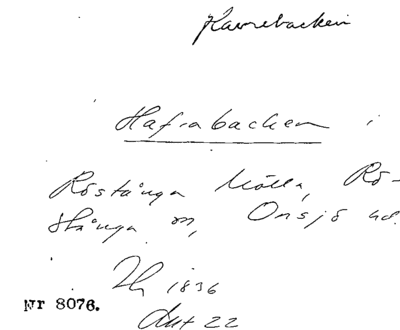 Havrebacken
Hafrabacken i
Röstånga Mölla, Rö-
stånga sn, Onsjö hd.
1836
Nr 8076.
Akt 22